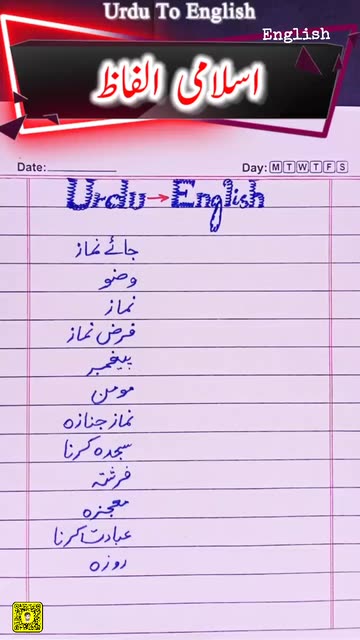 Urdu To English
English
اسلامی الفاظ
Date:
Day: M T W T F S
Urdu → English
جائے نماز
وضو
نماز
فرض نماز
پیغمبر
مومن
نماز جنازہ
سجدہ کرنا
فرشتہ
معجزہ
عبادت کرنا
روزہ